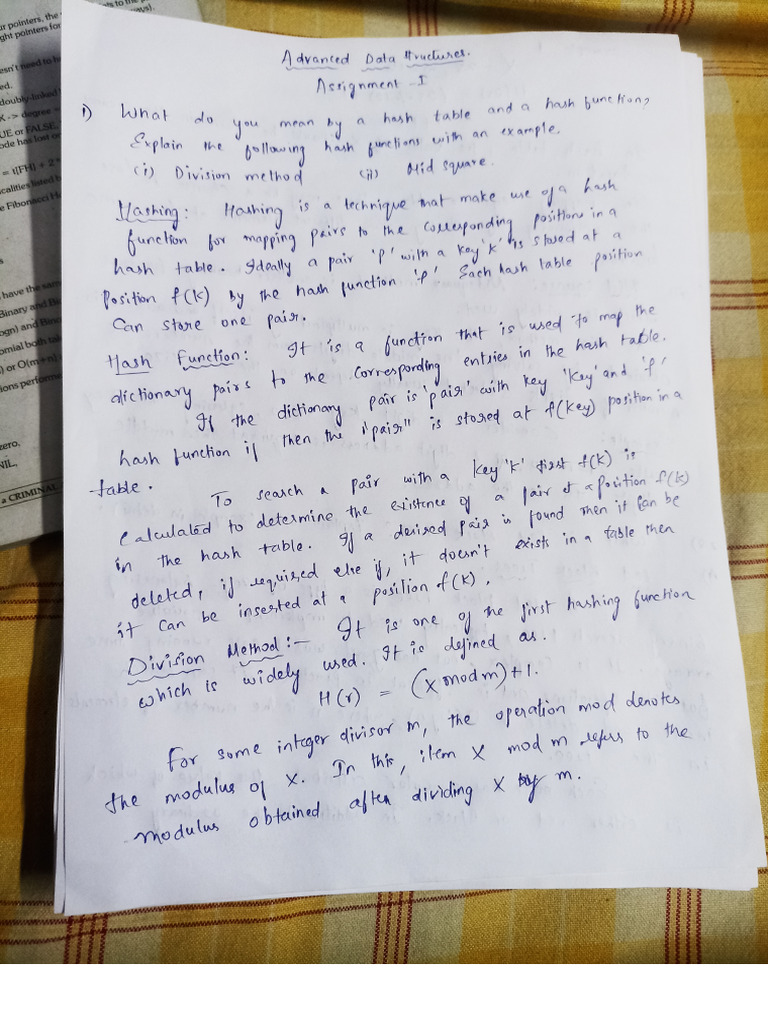 ur pointers, the
ght pointers for
esn't need to h
ed.
doubly-linked
X -> degree =
UE or FALSE,
ode has lost or
= t[FH] + 2
calities listed b
e Fibonacci H
s
have the sam
Binary and Bi
ogn) and Bino
omial both tak
) or O(m+n)
ions performe
zero.
NIL,
a CRIMINAL
Advanced Data structures.
Assignment - I
1) What do you mean by a hash table and a hash function?
Explain the following hash functions with an example.
(i) Division method (ii) Mid square.
Hashing: Hashing is a technique that make use of a hash
function for mapping pairs to the corresponding positions in a
hash table. Ideally a pair 'p' with a key 'k' is stored at a
position f(k) by the hash function 'f'. Each hash table position
can store one pair.
Hash Function: It is a function that is used to map the
dictionary pairs to the corresponding entries in the hash table.
If the dictionary pair is 'pair' with key 'key' and 'f'
hash function if then the "pair" is stored at f(key) position in a
table.
To search a pair with a key 'k' first f(k) is
calculated to determine the existence of a pair at a position f(k)
in the hash table. If a desired pair is found then it can be
deleted, if required else if, it doesn't exists in a table then
it can be inserted at a position f(k).
Division Method:- It is one of the first hashing function
which is widely used. It is defined as.
H(r) = (X mod m) + 1.
For some integer divisor m, the operation mod denotes
the modulus of X. In this, item X mod m refers to the
modulus obtained after dividing X by m.